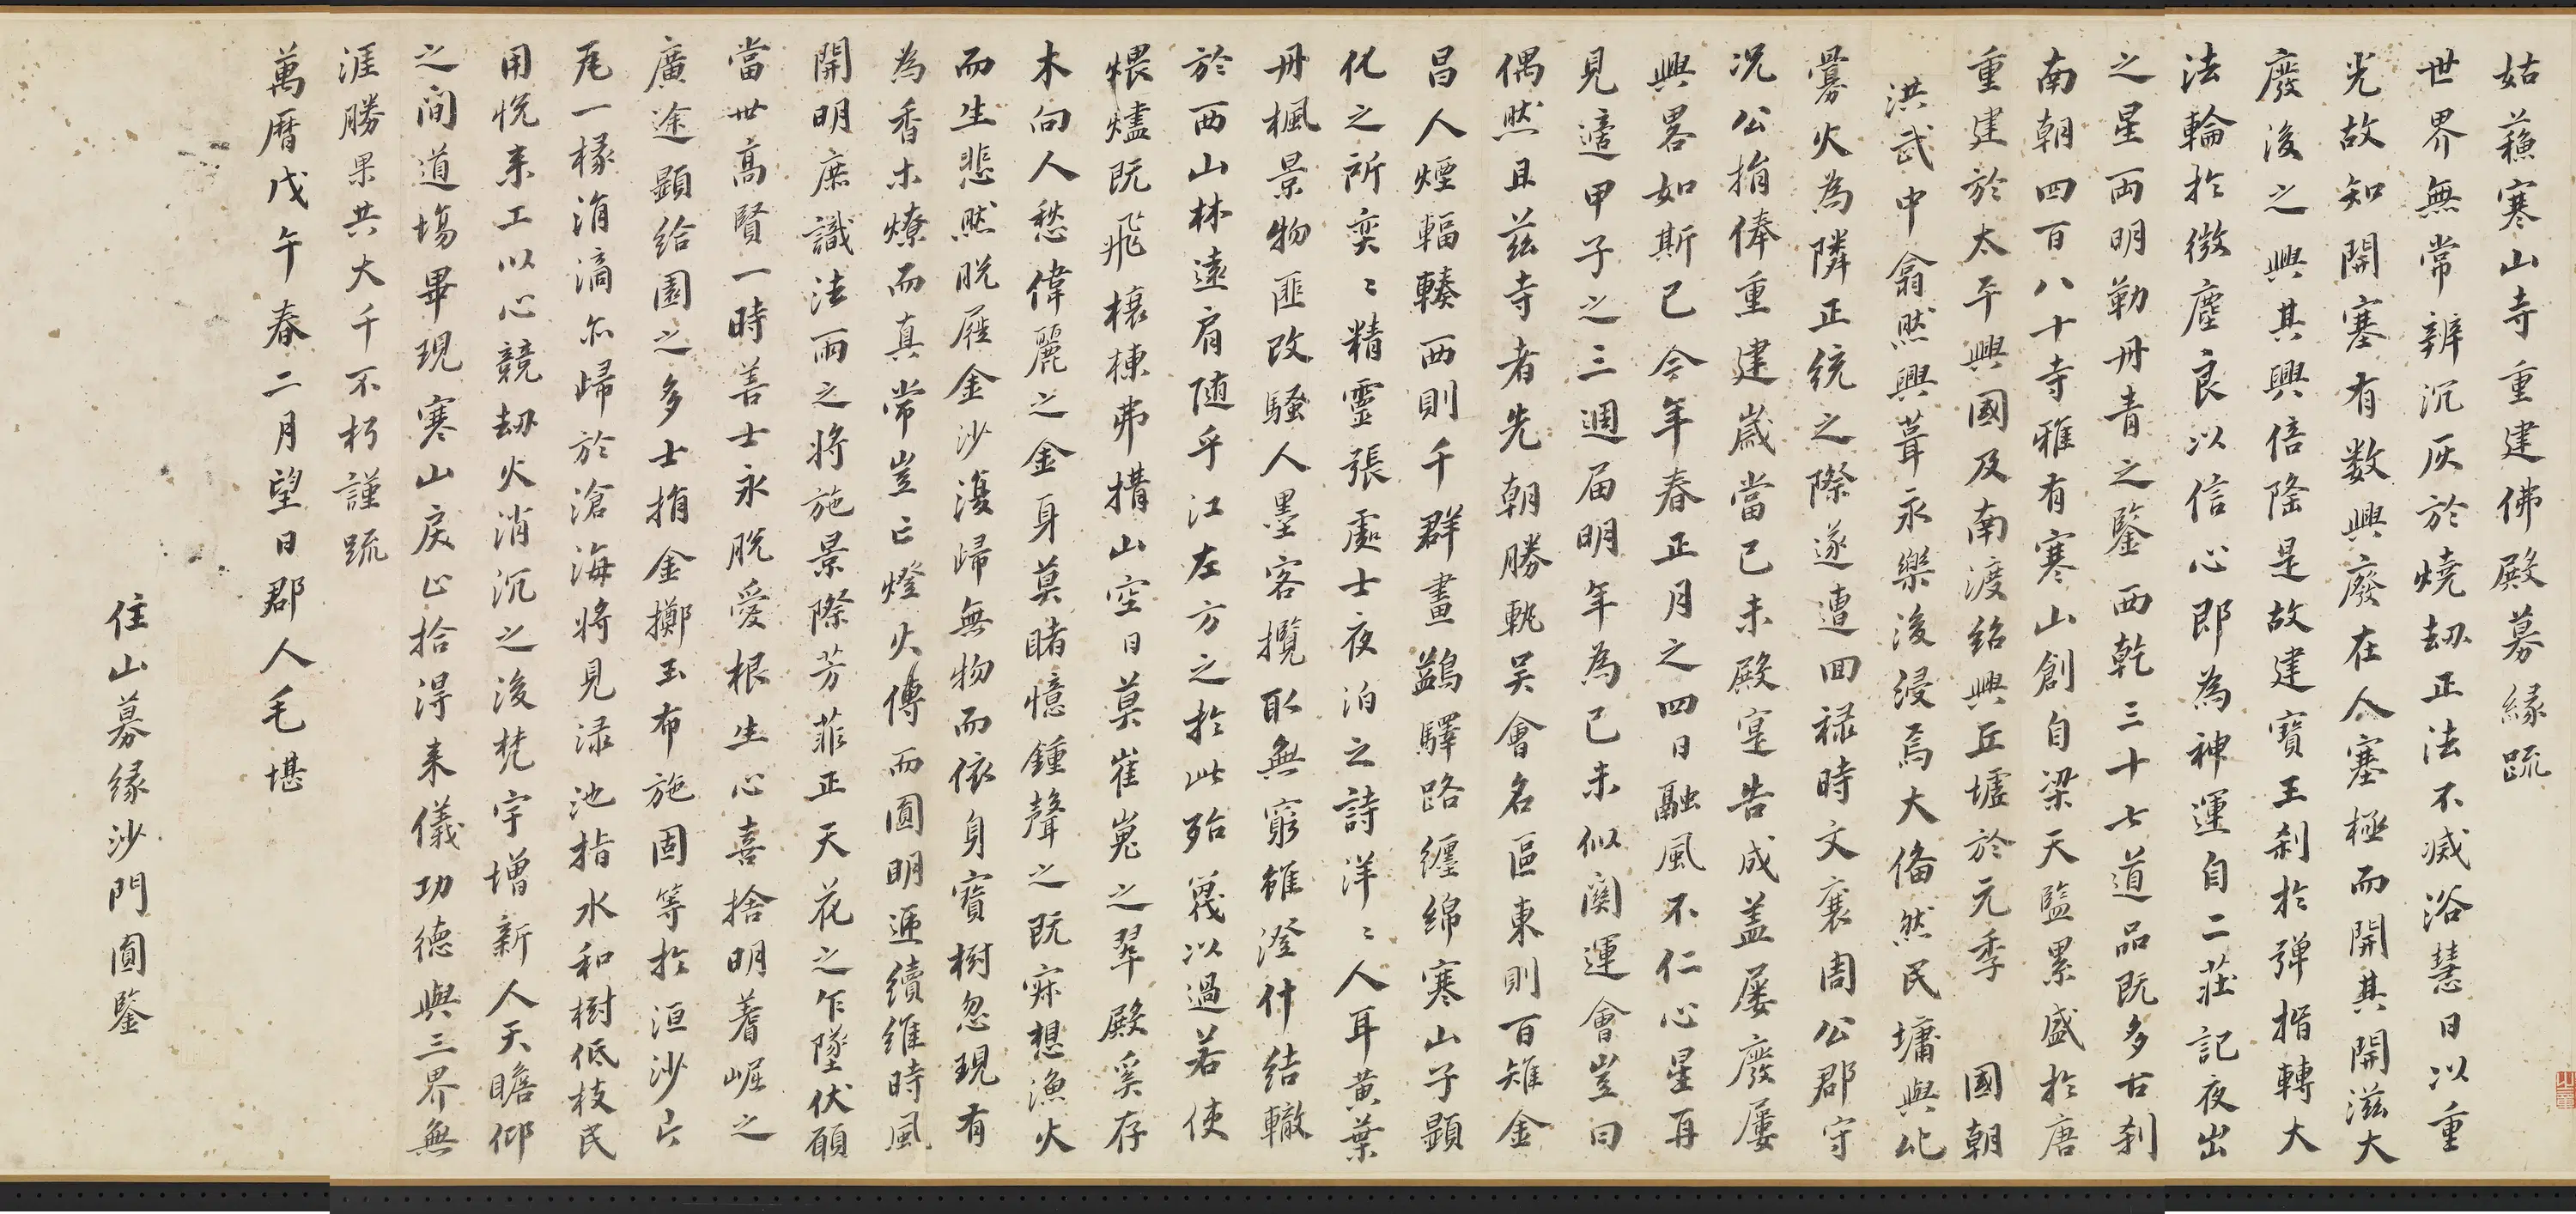 姑蘓寒山寺重建佛殿募緣疏
世界無常辨沉灰於燒劫正法不滅浴慧日以重
光故知開塞有数興廢在人塞極而開其開滋大
廢後之興其興倍隆是故建寳王刹扵弾指轉大
法輪扵微塵良以信心即為神運自二莊記夜出
之星両明勒丹青之鑒西乾三十七道品既多古刹
南朝四百八十寺雅有寒山創自梁天監累盛扵唐
重建於太平興國及南渡紹興丘墟於元季 國朝
洪武中翕然興葺永樂後浸焉大俻然民墉與此
爨火為隣正統之際遂遭回禄時文襄周公郡守
况公捐俸重建歲當已未殿寔告成盖屡廢屡
興畧如斯已今年春正月之四日融風不仁心星再
見適甲子之三週届明年為已未似関運會豈曰
偶然且兹寺者先朝勝軌吴會名區東則百雉金
昌人煙輻輳西則千群畫鷁驛路纏綿寒山子顕
化之所奕〻精靈張處士夜泊之詩洋〻人耳黄葉
丹楓景物匪改騷人墨客攬取無窮雖澄什結轍
於西山林遠肩随乎江左方之扵此殆篾以過若使
煨燼既飛榱棟弗搆山空日莫崔嵬之翠殿奚存
木向人愁偉麗之金身莫睹憶鍾聲之既寂想漁火
而生悲然脱屣金沙湲歸無物而依身寳樹忽現有
為香木燎而真常豈亡燈火傳而圓明逓續維時風
開明庶識法雨之将施景際芳菲正天花之乍墜伏願
當世髙賢一時善士永脱愛根生心喜捨明耆崛之
廣途顕給園之多士捐金擲玉布施固等扵洹沙片
瓦一椽涓滴尔歸於滄海将見渌池指水和樹低枝民
用悦来工以心競劫火消沉之後梵宇增新人天瞻仰
之間道場畢現寒山戾止拾得来儀功德與三界無
涯勝果共大千不朽謹疏
萬曆戊午春二月望日郡人毛堪
住山募緣沙門圓鑒